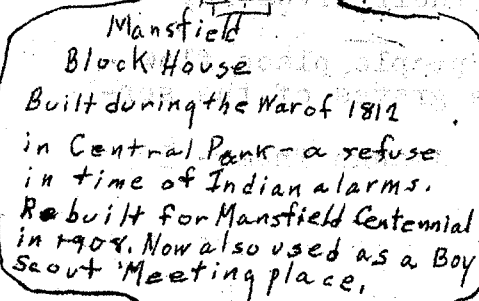 Mansfield
Block House
Built during the War of 1812
in Central Park - a refuse
in time of Indian alarms.
Rebuilt for Mansfield Centennial
in 1908. Now also used as a Boy
Scout Meeting place.